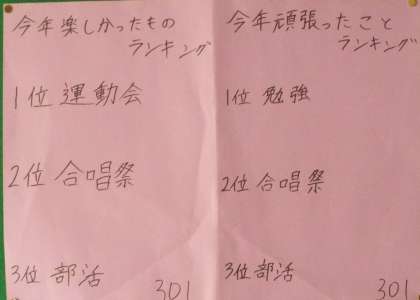 今年楽しかったもの
ランキング
1位 運動会
2位 合唱祭
3位 部活
301
今年頑張ったこと
ランキング
1位 勉強
2位 合唱祭
3位 部活
301